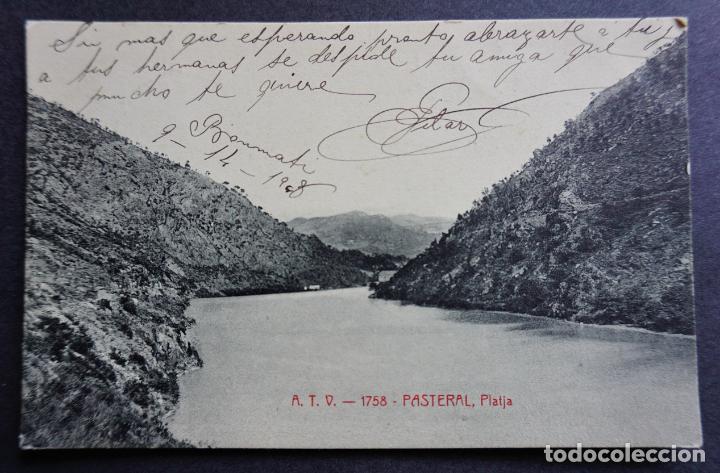 Sin mas que esperando pronto abrazarte á tu y
a tus hermanas se despide tu amiga que
mucho te quiere
Pilar
Bonmati
9 - 14 - 1908
A. T. V. — 1758 - PASTERAL, Platja
todocoleccion.net